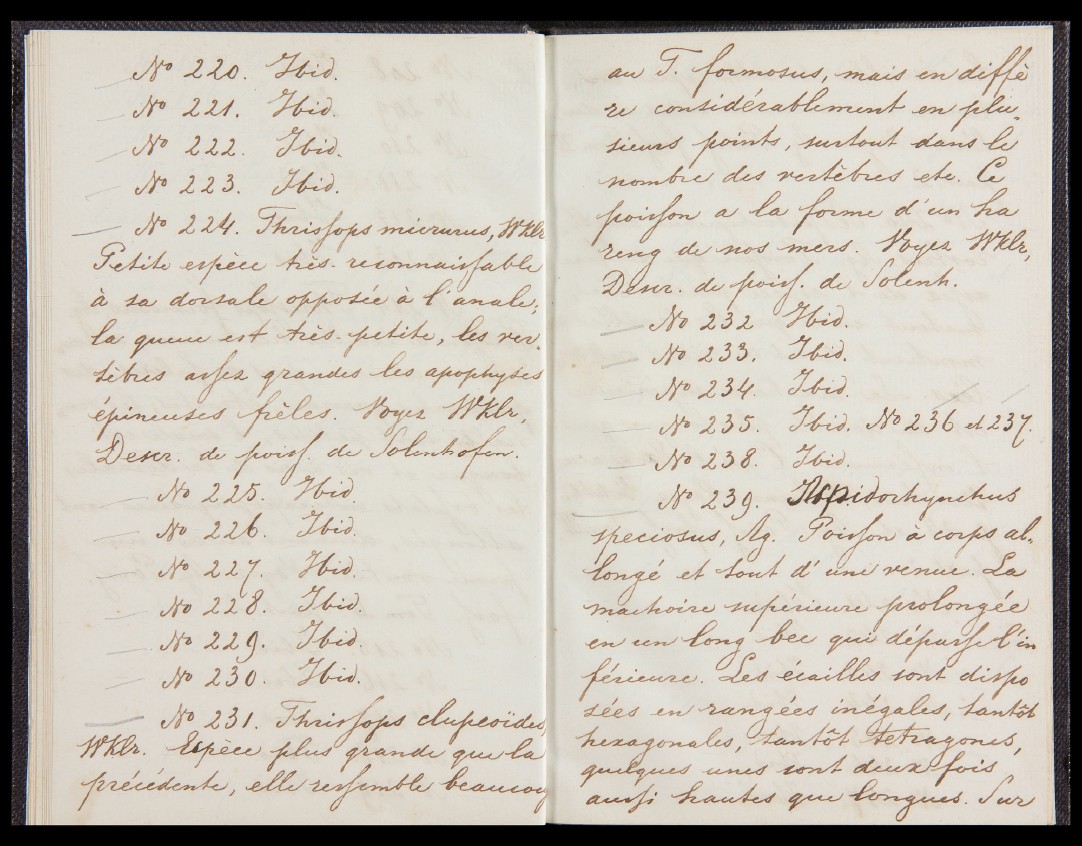 № 220. Ibid.
№ 221. Ibid.
№ 222. Ibid.
№ 223. Ibid.
№ 224. Thrissops micrurus, Wklr
Petite espèce très-reconnaissable
à sa dorsale opposée à l'anale;
la queue est très-petite, les ver-
tèbres assez grandes les apophyses
épineuses frêles. Voyez Wklr,
Descr. de poiss. de Solenhofen.
№ 225. Ibid.
№ 226. Ibid.
№ 227. Ibid.
№ 228. Ibid.
№ 229. Ibid.
№ 230. Ibid.
№ 231. Thrissops clupeoïdes,
Wklr. Espèce plus grande que la
précédente, elle ressemble beaucoup
au T. formosus, mais en diffè
re considérablement en plu-
sieurs points, surtout dans le
nombre des vertèbres etc. Ce
poisson a la forme d'un ha
reng de nos mers. Voyez Wklr,
Descr. de poiss. de Solenh.
№ 232 Ibid.
№ 233. Ibid.
№ 234. Ibid.
№ 235. Ibid. № 236 et 237.
№ 238. Ibid.
№ 239. Aspidorhynchus
speciosus, Ag. Poisson à corps al-
longé et tout d'une venue. La
machoire supérieure prolongée
en un long bec qui dépasse l'in
férieure. Les écailles sont dispo
sées en rangées inégales, tantôt
hexagonales, tantôt tetragones,
quelques unes sont deux fois
aussi hautes que longues. Sur